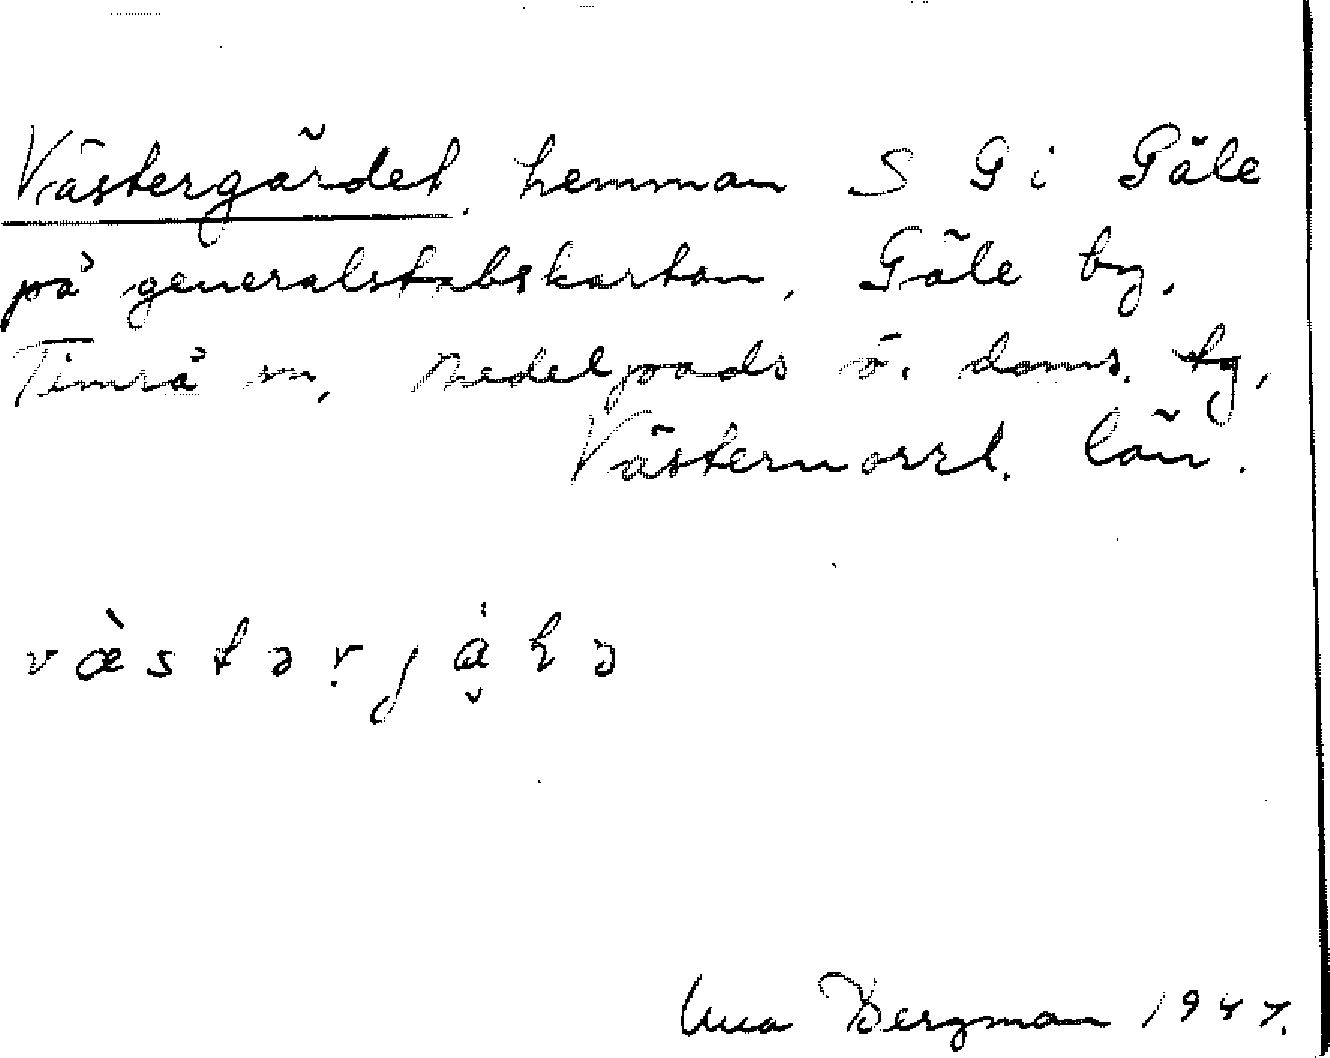 Västergärdet, hemman S G i Gäle
på generalstabskartan, Gäle by,
Timrå sn, Medelpads ö. doms. tg,
Västernorrl. län.
væ̀stərjạ̈ɽə
Bergman 1947.